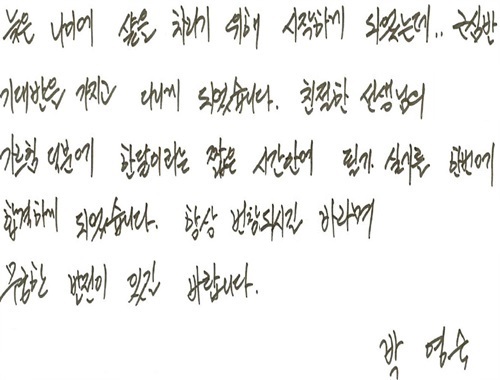 늦은 나이에 살을 찌리기 위해 시작하게 되었는데.. 근심반
기대반을 가지고 다니게 되었습니다. 친절한 선생님의
가르침 덕분에 한달이라는 짧은 시간안에 필기. 실기를 한번에
합격하게 되었습니다. 항상 번창되시길 바라며
무궁한 발전이 있길 바랍니다.
박 영숙